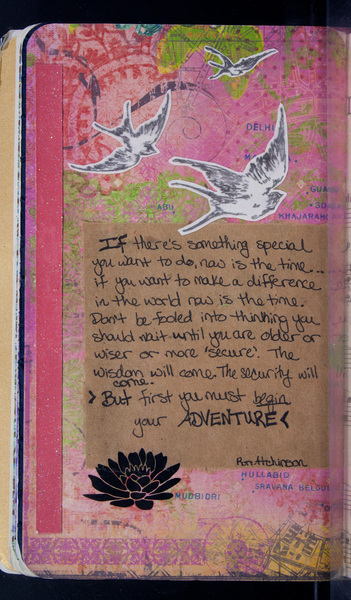 DELHI
ABU
KHAJARAHO
If there's something special
you want to do, now is the time...
if you want to make a difference
in the world now is the time.
Don't be fooled into thinking you
should wait until you are older or
wiser or more 'secure'. The
wisdom will come. The security will
come.
> But first you must begin
your ADVENTURE <
Ron Atchinson
HULLABID
SRAVANA BELGUL
MUDBIDRI